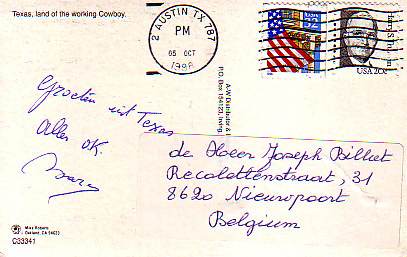 Texas, land of the working Cowboy.
2 AUSTIN TX 787
PM
05 OCT
1998
USA
32
Harry S. Truman
USA 20c
A-W Distributor &
P.O. Box 154123, Irving,
Groeten uit Texas
Alles OK.
de Heer Joseph Billiet
Recolettenstraat, 31
8620 Nieuwpoort
Belgium
Mike Roberts
Oakland, CA 94623
C33341